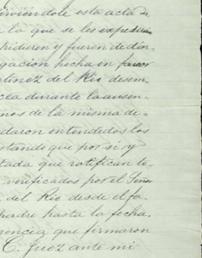 viviendole esta acta de
a lo que se les expidieron
pidieron y fueron de don
gacion hecha en favor
tinez del Rio desem
cta durante la ausen
nos de la misma de-
daron entendidos los
stando que por si y
tada que ratifican te
verificados por el Señor
del Rio desde el fa
padre hasta la fecha.
rencia que firmaron
C. Juez ante mi